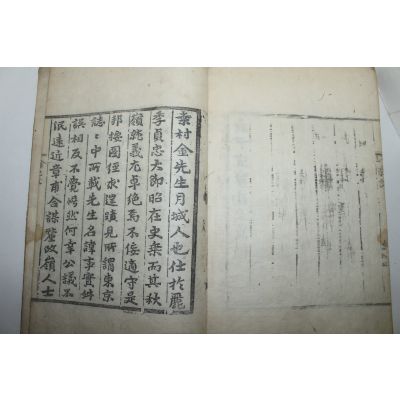 村金先生月城人也仕於麗
季貞忠大節昭在史乘而其秋
嶺執義尤卓絶焉不佞適守是
邦按圖經求遺蹟見所謂東京
誌誌中所載先生名諱事實舛
誤相反不覺愕然何幸公議不
泯遠近章甫合謀釐政嶺人士